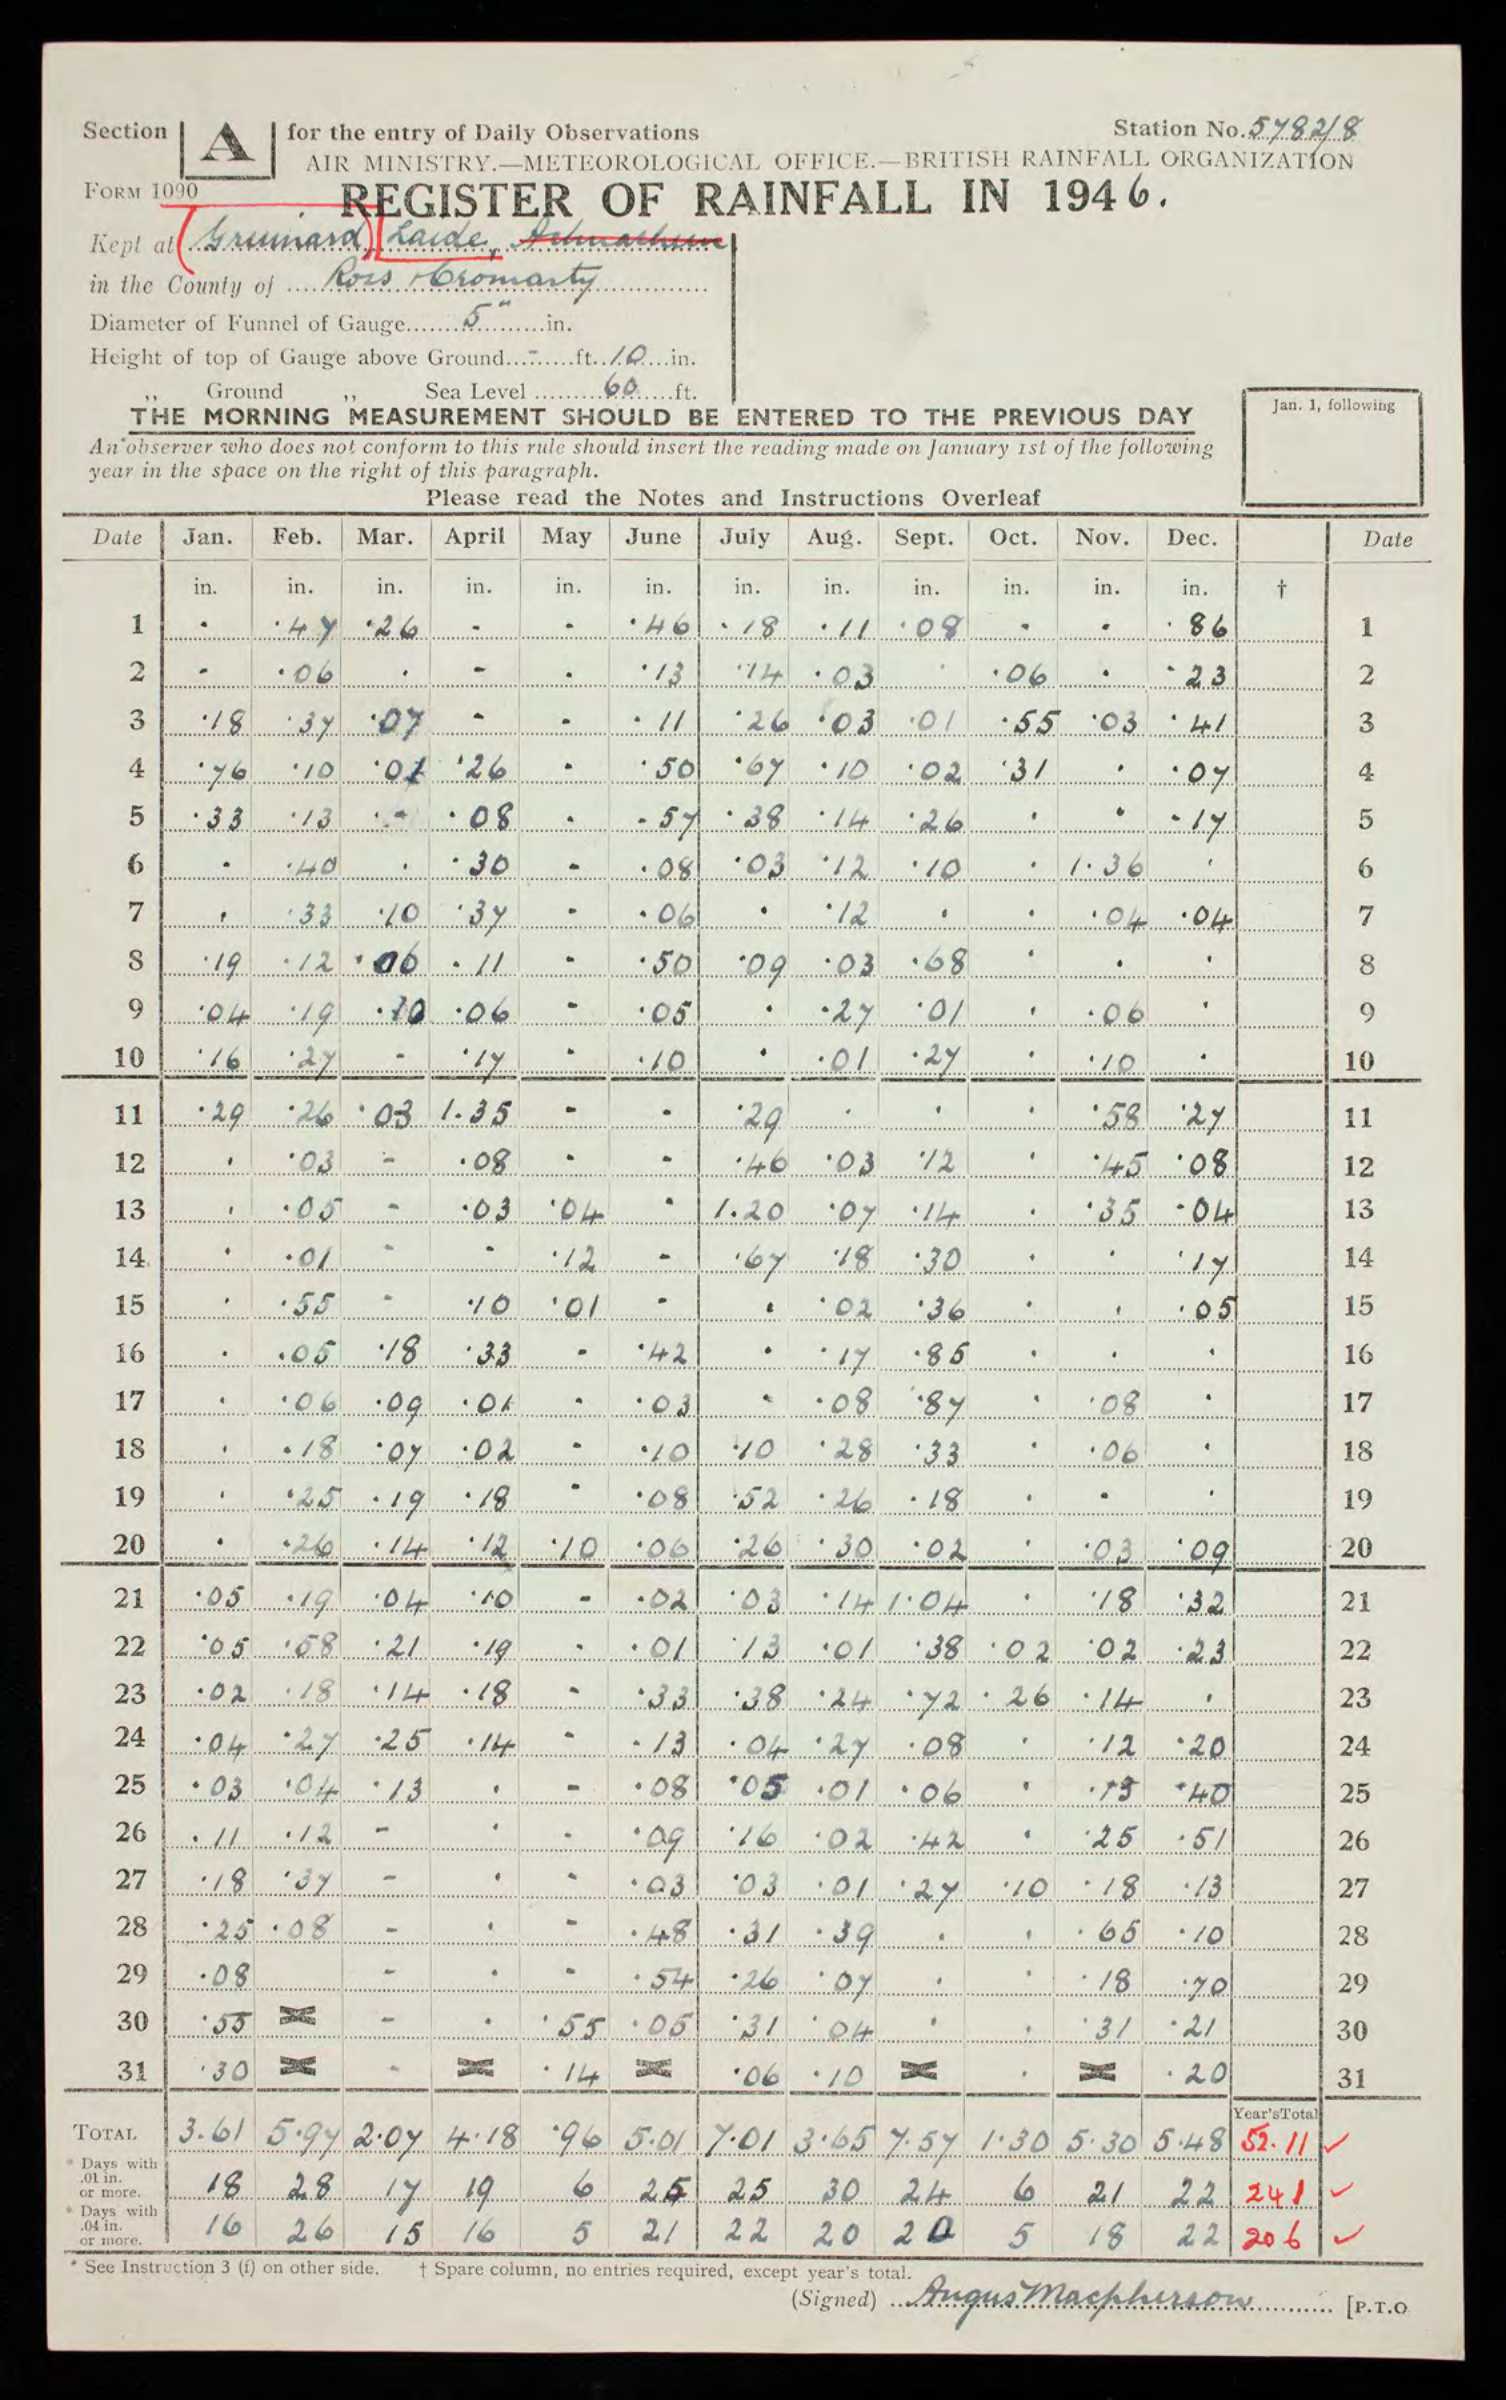 Section A for the entry of Daily Observations Station No. 5782/8
AIR MINISTRY.—METEOROLOGICAL OFFICE.—BRITISH RAINFALL ORGANIZATION
FORM 1090 REGISTER OF RAINFALL IN 1946.
Kept at (Gruinard) Laide,
in the County of .... Ross & Cromarty
Diameter of Funnel of Gauge....... 5" ..........in.
Height of top of Gauge above Ground...-......ft..10....in.
,, Ground ,, Sea Level ..........60......ft.
THE MORNING MEASUREMENT SHOULD BE ENTERED TO THE PREVIOUS DAY
Jan. 1, following
An observer who does not conform to this rule should insert the reading made on January 1st of the following
year in the space on the right of this paragraph.
Please read the Notes and Instructions Overleaf
Date Jan. Feb. Mar. April May June July Aug. Sept. Oct. Nov. Dec. Date
in. in. in. in. in. in. in. in. in. in. in. in. †
1 · ·47 ·26 - - ·46 ·18 ·11 ·08 · · ·86 1
2 - ·06 · - · ·13 ·14 ·03 · ·06 · ·23 2
3 ·18 ·37 ·07 - - ·11 ·26 ·03 ·01 ·55 ·03 ·41 3
4 ·76 ·10 ·01 ·26 · ·50 ·67 ·10 ·02 ·31 · ·07 4
5 ·33 ·13 - ·08 · ·57 ·38 ·14 ·26 · · ·17 5
6 · ·40 · ·30 - ·08 ·03 ·12 ·10 · 1·36 · 6
7 · ·33 ·10 ·37 - ·06 · ·12 · · ·04 ·04 7
8 ·19 ·12 ·06 ·11 - ·50 ·09 ·03 ·68 · · · 8
9 ·04 ·19 ·10 ·06 - ·05 · ·27 ·01 · ·06 · 9
10 ·16 ·27 - ·17 · ·10 · ·01 ·27 · ·10 · 10
11 ·29 ·26 ·03 1·35 - - ·29 · · · ·58 ·27 11
12 · ·03 - ·08 - - ·46 ·03 ·12 · ·45 ·08 12
13 · ·05 - ·03 ·04 · 1·20 ·07 ·14 · ·35 ·04 13
14 · ·01 - - ·12 - ·67 ·18 ·30 · · ·17 14
15 · ·55 - ·10 ·01 - · ·02 ·36 · · ·05 15
16 · ·05 ·18 ·33 - ·42 · ·17 ·85 · · · 16
17 · ·06 ·09 ·01 - ·03 · ·08 ·87 · ·08 · 17
18 · ·18 ·07 ·02 - ·10 ·10 ·28 ·33 · ·06 · 18
19 · ·25 ·19 ·18 - ·08 ·52 ·26 ·18 · · · 19
20 · ·26 ·14 ·12 ·10 ·06 ·26 ·30 ·02 · ·03 ·09 20
21 ·05 ·19 ·04 ·10 - ·02 ·03 ·14 1·04 · ·18 ·32 21
22 ·05 ·58 ·21 ·19 · ·01 ·13 ·01 ·38 ·02 ·02 ·23 22
23 ·02 ·18 ·14 ·18 - ·33 ·38 ·24 ·72 ·26 ·14 · 23
24 ·04 ·27 ·25 ·14 - ·13 ·04 ·27 ·08 · ·12 ·20 24
25 ·03 ·04 ·13 · - ·08 ·05 ·01 ·06 · ·40 25
26 ·11 ·12 - · · ·09 ·16 ·02 ·42 · ·25 ·51 26
27 ·18 ·37 - · - ·03 ·03 ·01 ·27 ·10 ·18 ·13 27
28 ·25 ·08 - · - ·48 ·31 ·39 · · ·65 ·10 28
29 ·08 - · - ·54 ·26 ·07 · · ·18 ·70 29
30 ·55 - · ·55 ·05 ·31 ·04 · · ·31 ·21 30
31 ·30 - ·14 ·06 ·10 · ·20 31
Year's Total
TOTAL 3·61 5·97 2·07 4·18 ·96 5·01 7·01 3·65 7·57 1·30 5·30 5·48 52·11 ✓
* Days with .01 in. or more. 18 28 17 19 6 25 25 30 24 6 21 22 241 ✓
* Days with .04 in. or more. 16 26 15 16 5 21 22 20 20 5 18 22 206 ✓
* See Instruction 3 (f) on other side. † Spare column, no entries required, except year's total.
(Signed) ..Angus Macpherson........... [P.T.O